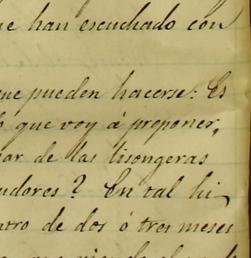 e han escuchado con
que pueden hacerse: Es
que voy á proponer,
ar de las lisongeras
udores? En tal hi
tro de dos ó tres meses